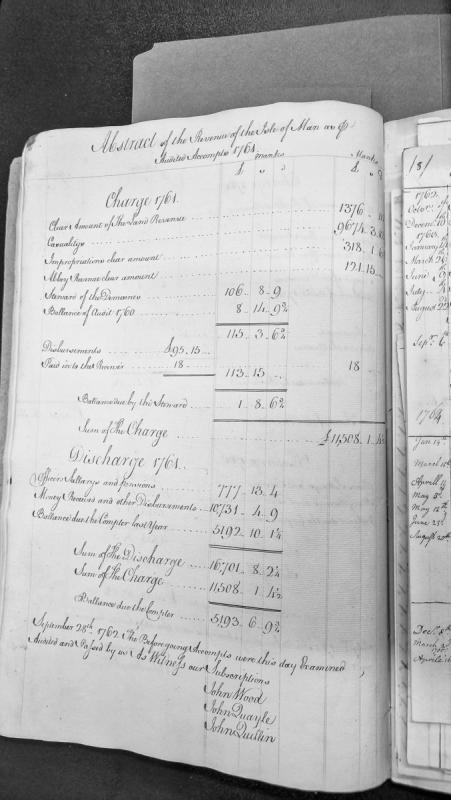 Abstract of the Revenue of the Isle of Man as ⅌
Audited Accompts 1761.
Manks Manks
£ " " £ " "
Charge 1761.
Clear Amount of The Land Revenue 1376 "
Casualtys 9674 " 3
Impropriations clear amount 318 " 1
Abbey Revenue clear amount 121 " 15
Steward of the Demesnes 106 " 8 " 9
Ballance of Audit 1760 8 " 14 " 9¾
115 " 3 " 6¾
Disbursements £95 " 15
Paid into the Receiver 18 113 " 15 18
Ballance due by the Steward 1 " 8 " 6¾
Sum of The Charge £11,508 " 1 " 4½
Discharge 1761.
Officers Sallarys and pensions 777 " 13 " 4
Money Received and other Disbursements 10,731 " 4 " 9
Ballance due the Compter last Year 5192 " 10 " 1¼
Sum of The Discharge 16,701 " 8 " 2¼
Sum of The Charge 11,508 " 1 " 4½
Ballance due the Compter 5193 " 6 " 9¾
September 28th. 1762 The Beforegoing Accompts were this day Examined,
Audited and Passed by us As Witness our Subscriptions
John Wood
John Quayle
John Quillin
/8/
1762
Octobr.
Decemr.
1763
January
March 26
June
July
August 22
Sepr. 6
1764
Jan
March
Aprill
May 5
May 12th
June 23
August 20th
Decr. 8th
March
Aprile